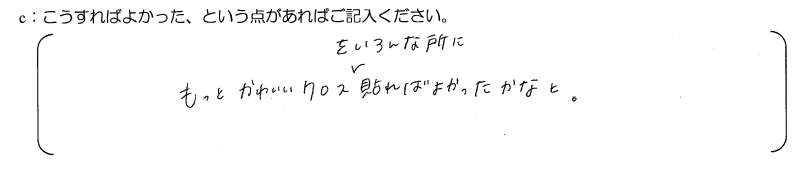 c：こうすればよかった、という点があればご記入ください。
をいろんな所に
もっと かわいいクロス貼ればよかったかなと。